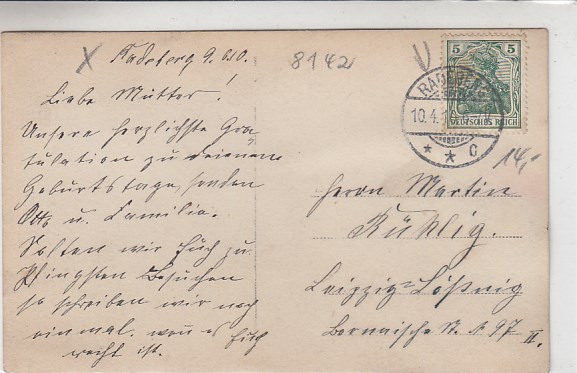 Radeberg 9. 4. 10.
8142
Liebe Mutter!
Unsere herzlichste Gra-
tulation zu deinem
Geburtstage, senden
Otto u. Familie.
Solten wir Euch zu
Pfingsten Besuchen
so schreiben wir noch
einmal. wen es Euch
recht ist.
5 5
DEUTSCHES REICH
RADEBERG
10.4.
* * c
14,-
Herrn Martin
Kühlig.
Leipzig-Lößnig
Bornaische St. N 97 II.